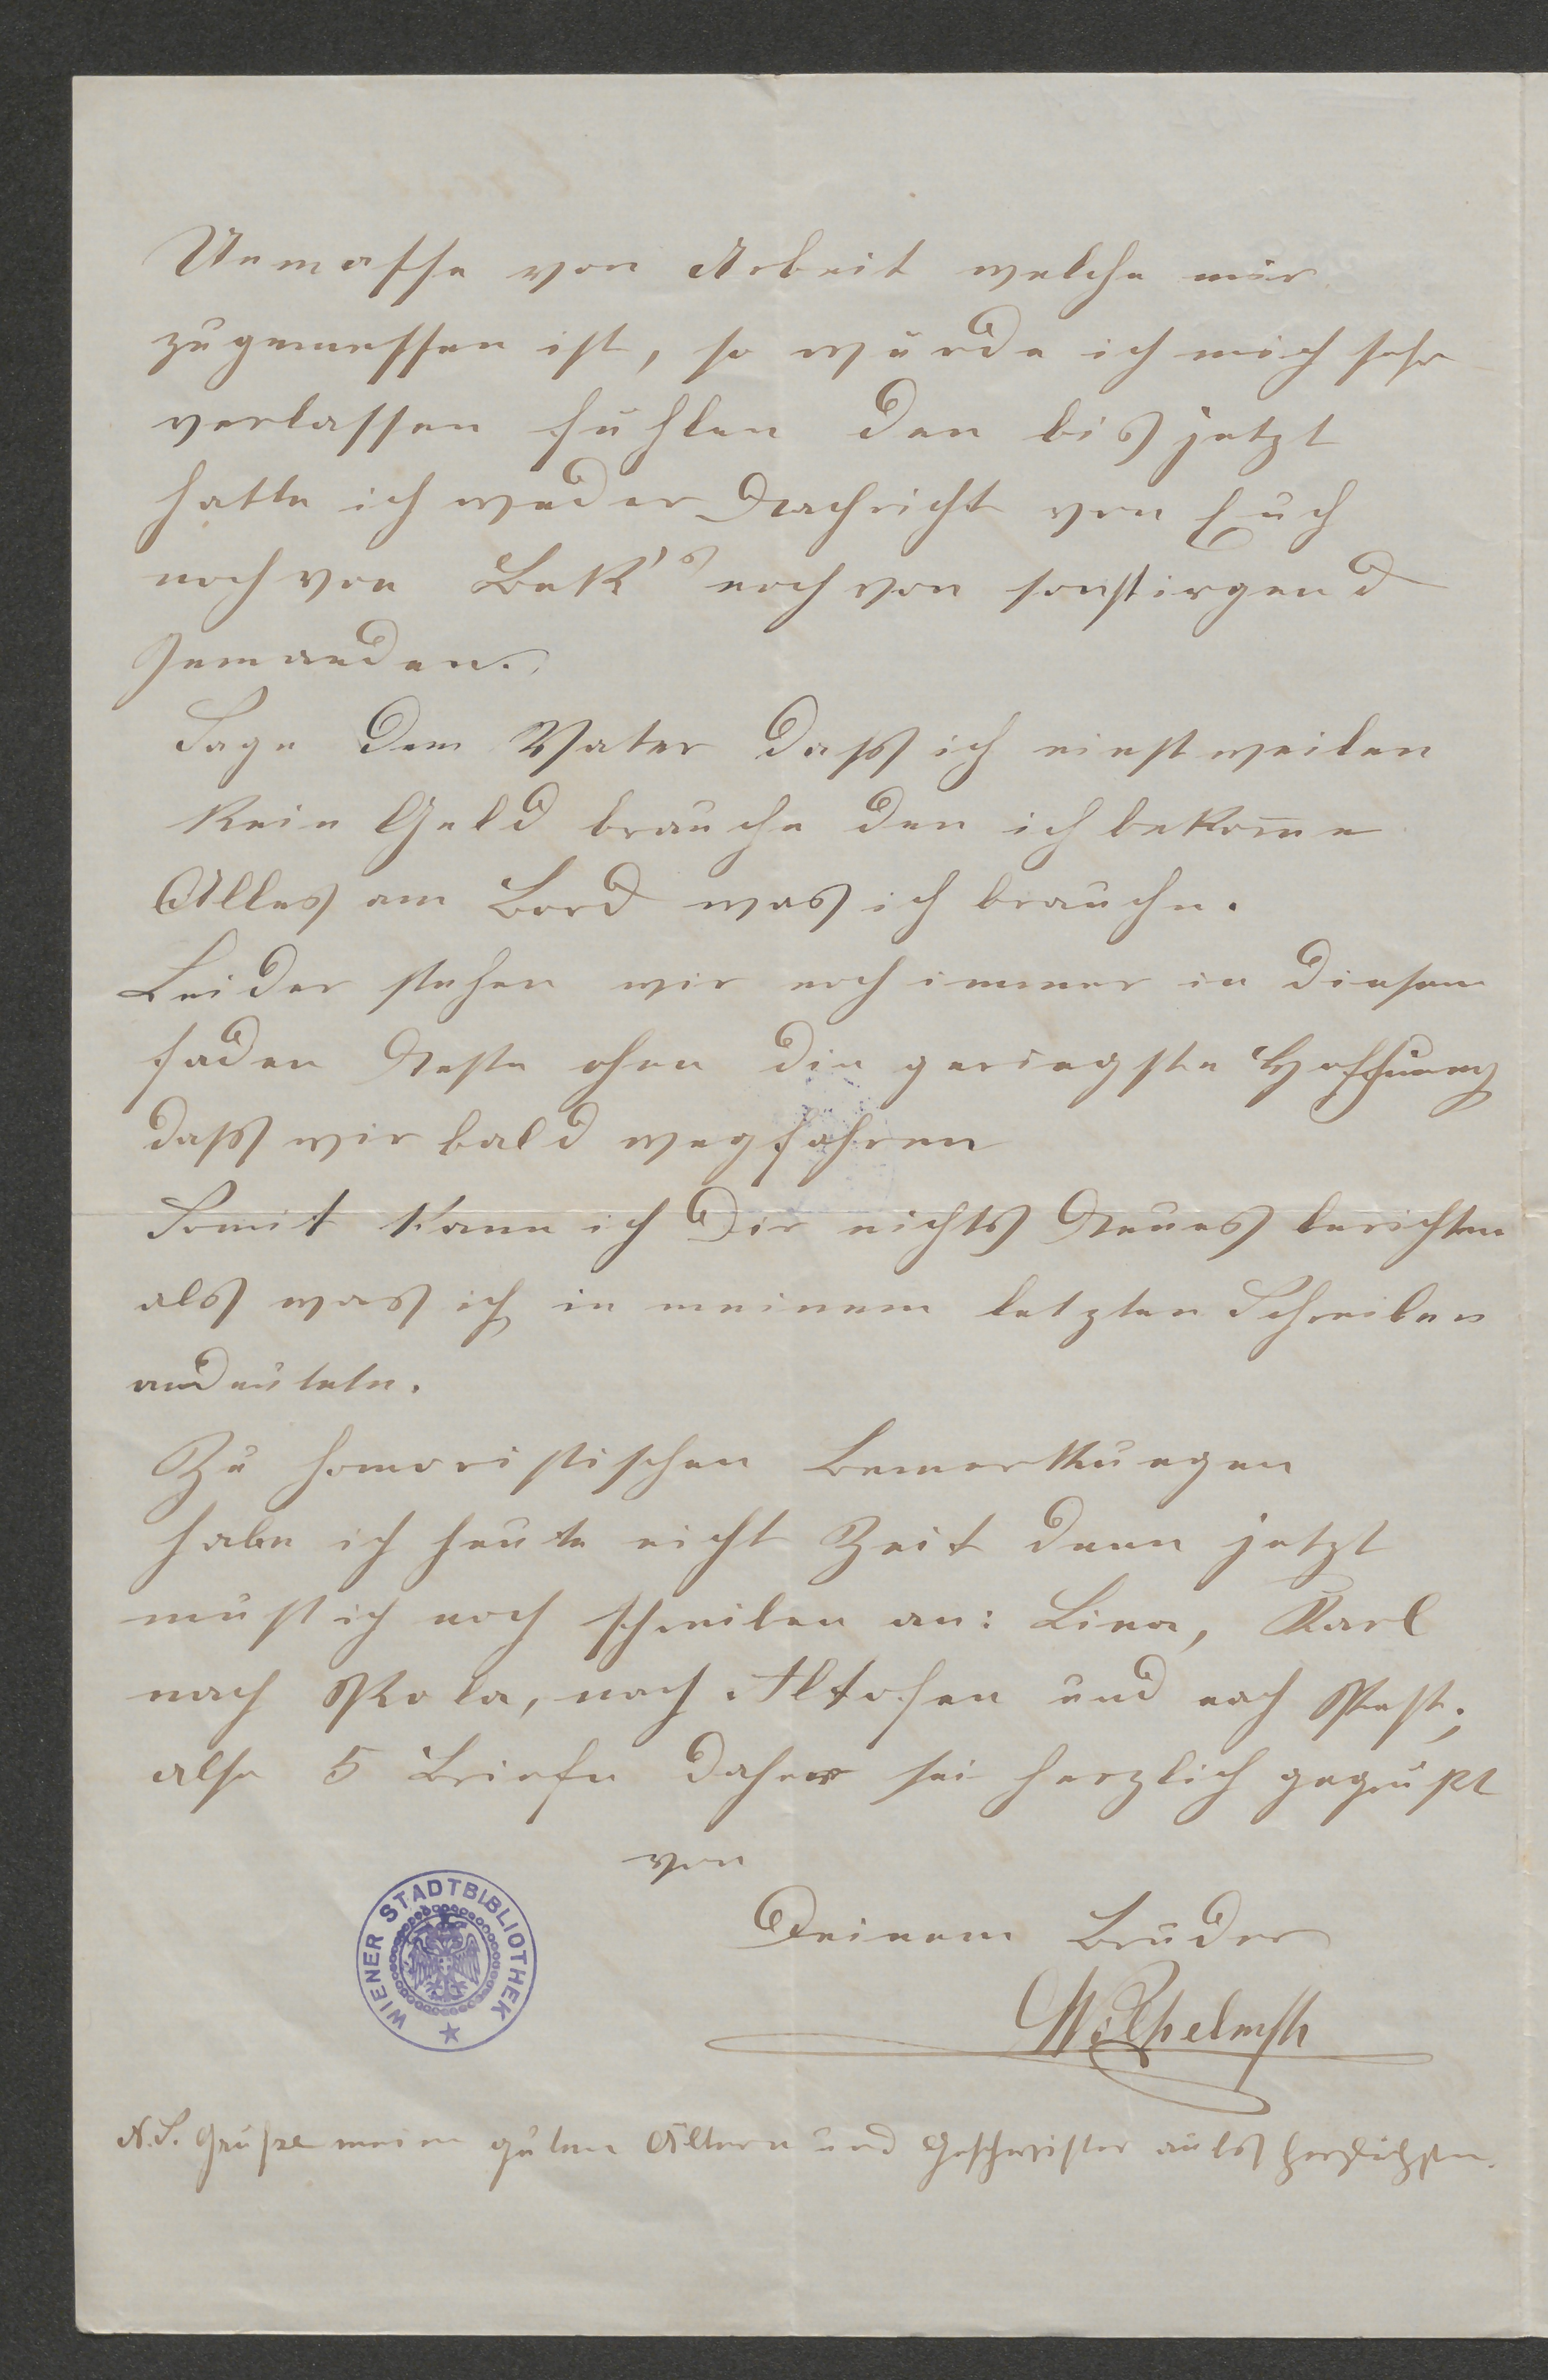 Unmasse von Arbeit welche mir
zugemessen ist, so würde ich mich sehr
verlassen fühlen den bis jetzt
hatte ich weder Nachricht von Euch
noch von Bek's noch von sonst irgend
Jemanden.
Sage dem Vater dass ich einstweilen
kein Geld brauche den ich bekom̄e
Alles am Bord was ich brauche.
Leider stehen wir noch immer in diesem
faden Neste ohne die geringste Hoffnung
dass wir bald wegfahren
Somit kann ich Dir nichts Neues berichten
als was ich in meinem letzten Schreiben
andeutete.
Zu homoristischen Bemerkungen
habe ich heute nicht Zeit denn jetzt
muß ich noch schreiben an: Lina, Karl
nach Pola, nach Altofen und nach Pest;
also 5 Briefe daher sei herzlich gegrüßt
von
Deinem Bruder
Wilhelm
WIENER STADTBIBLIOTHEK
N.S. Grüße meine guten Ältern und Geschwister aufs herzlichste.